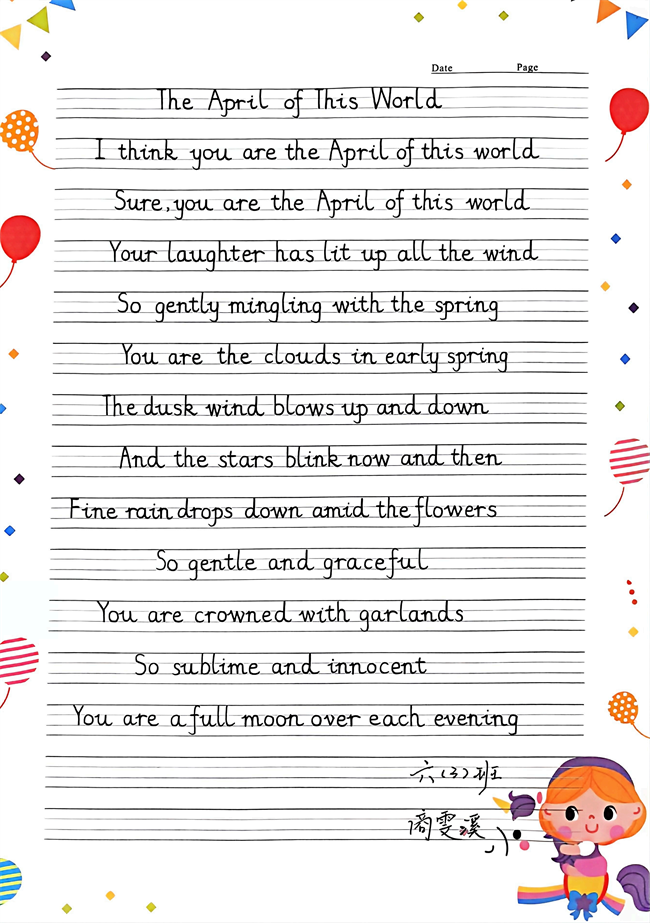 Date Page
The April of This World
I think you are the April of this world
Sure, you are the April of this world
Your laughter has lit up all the wind
So gently mingling with the spring
You are the clouds in early spring
The dusk wind blows up and down
And the stars blink now and then
Fine rain drops down amid the flowers
So gentle and graceful
You are crowned with garlands
So sublime and innocent
You are a full moon over each evening
六(3)班
商雯溪